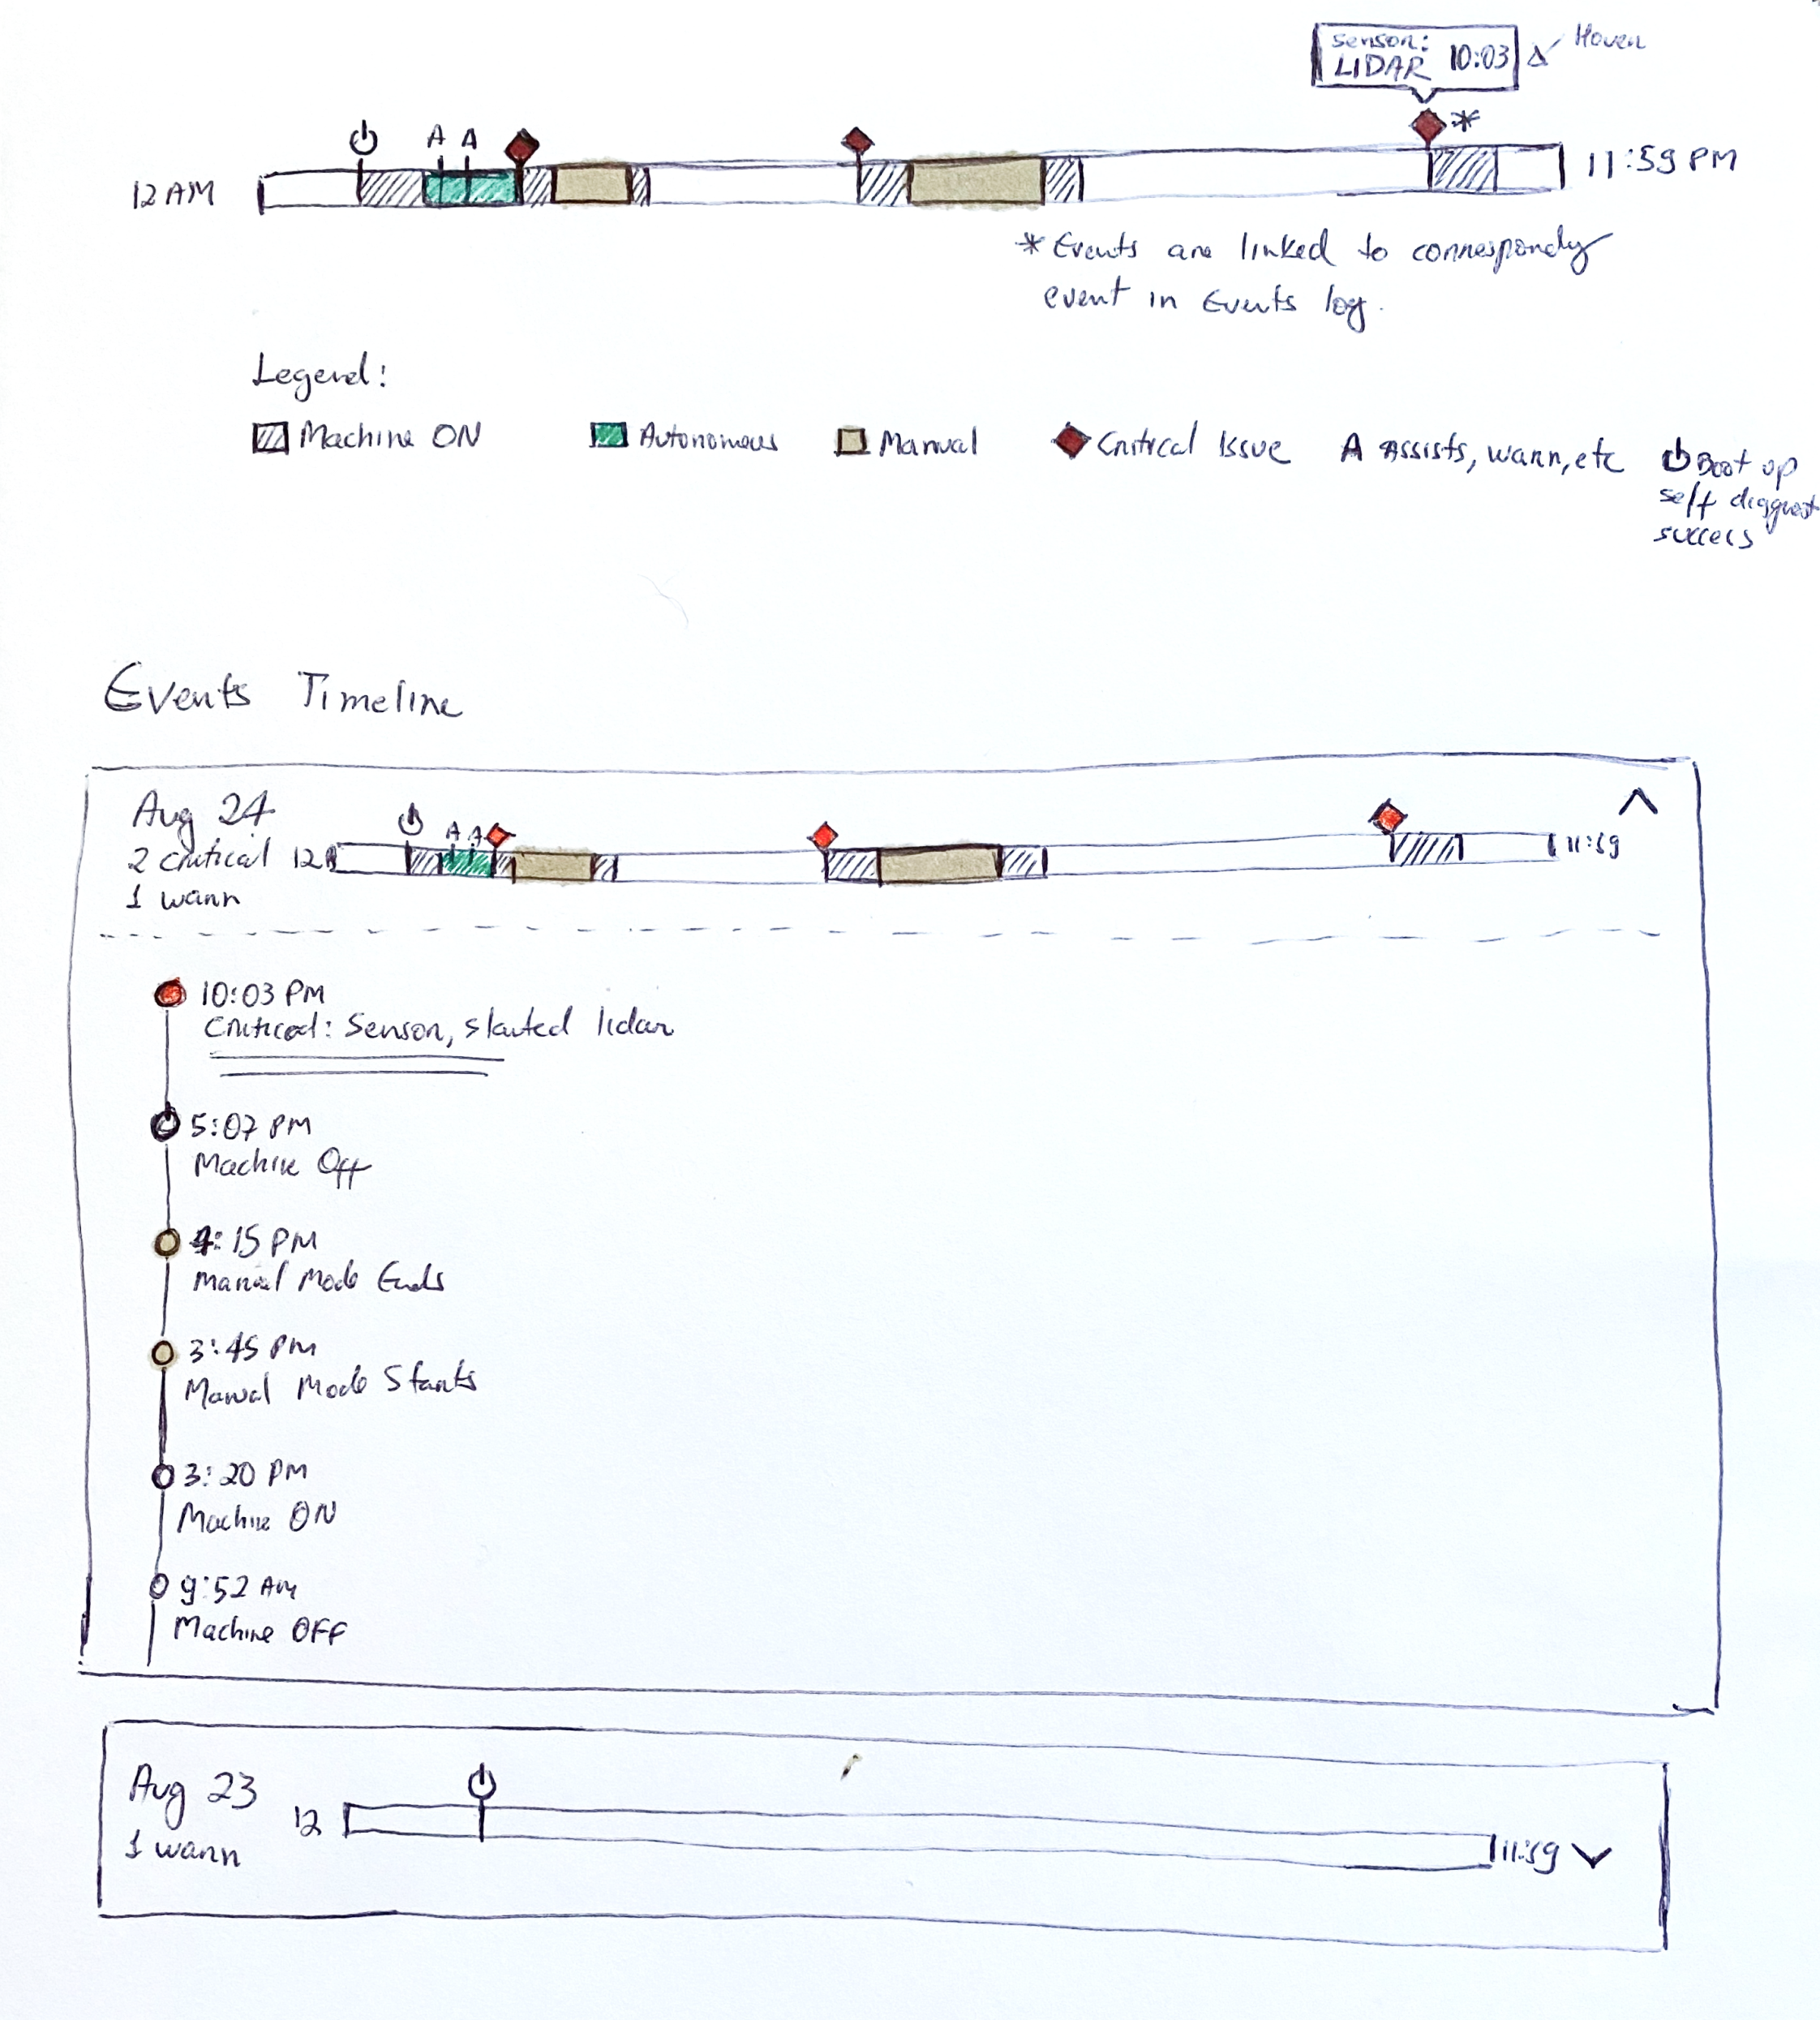 Sensor:
LIDAR 10:03
Hover
A A
12 AM
11:59 PM
* Events are linked to correspondy
event in Events log.
Legend:
Machine ON Autonomous Manual Critical Issue A Assists, warn, etc Boot up
self diagnost
success
Events Timeline
Aug 24
2 critical
1 warn
A A
12A
11:59
10:03 PM
Critical: Sensor, started lidar
5:07 PM
Machine Off
4:15 PM
Manual Mode Ends
3:45 PM
Manual Mode Starts
3:20 PM
Machine ON
9:52 AM
Machine OFF
Aug 23
1 warn
12
11:59